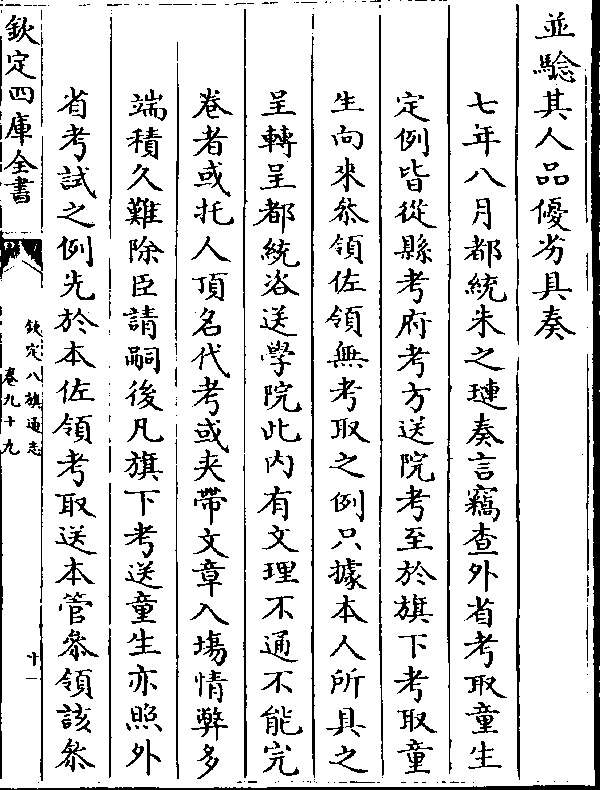 並驗其人品優劣具奏
七年八月都統朱之璉奏言竊查外省考取童生
定例皆從縣考府考方送院考至於旗下考取童
生向來叅領佐領無考取之例只據本人所具之
呈轉呈都統咨送學院此內有文理不通不能完
卷者或托人頂名代考或夾帶文章入塲情弊多
端積久難除臣請嗣後凡旗下考送童生亦照外
省考試之例先於本佐領考取送本管叅領該叅
欽定四庫全書
欽定八旗通志
卷九十九
十一